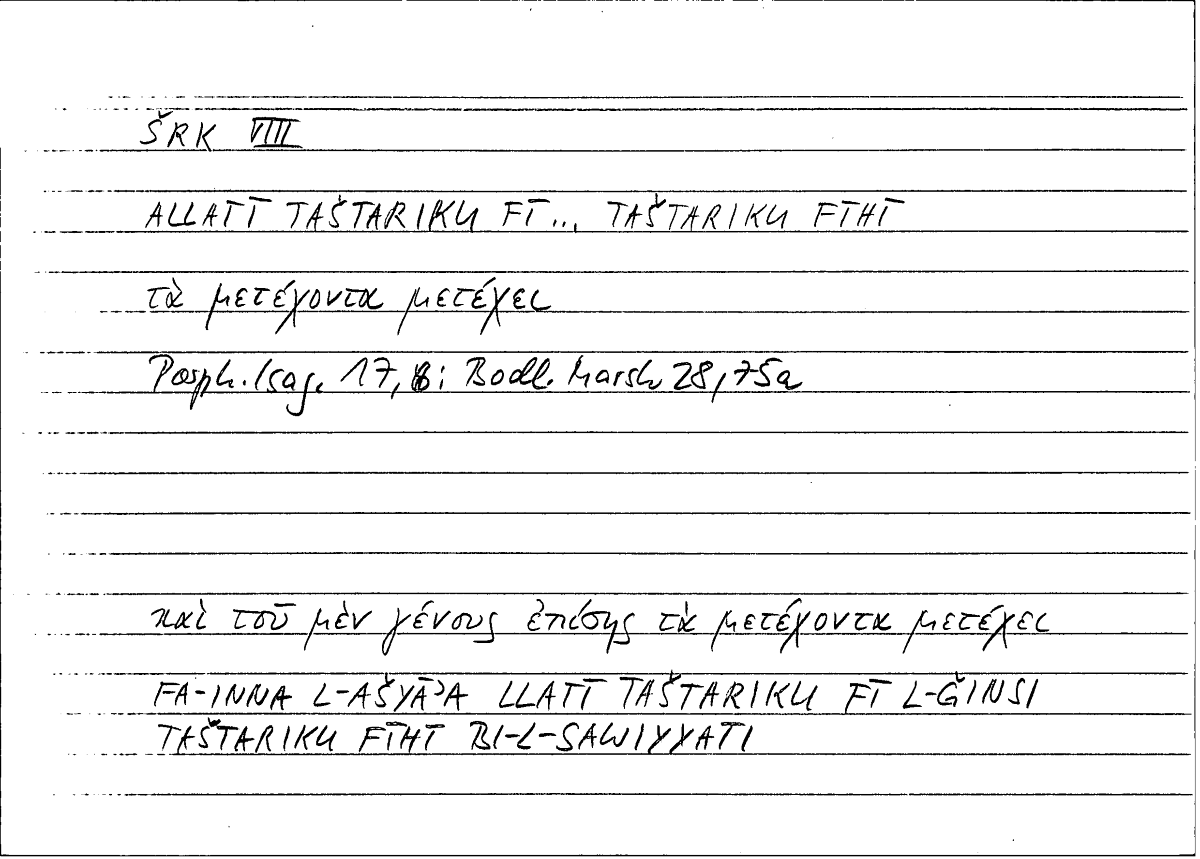 ŠRK VIII
ALLATĪ TAŠTARIKU FĪ ... TAŠTARIKU FĪHĪ
τὰ μετέχοντα μετέχει
Porph. Isag. 17, 8: Bodl. Marsh 28, 75a
καὶ τοῦ μὲν γένους ἐπίσης τὰ μετέχοντα μετέχει
FA-INNA L-AŠYĀʾA LLATĪ TAŠTARIKU FĪ L-ǦINSI
TAŠTARIKU FĪHĪ BI-L-SAWIYYATI